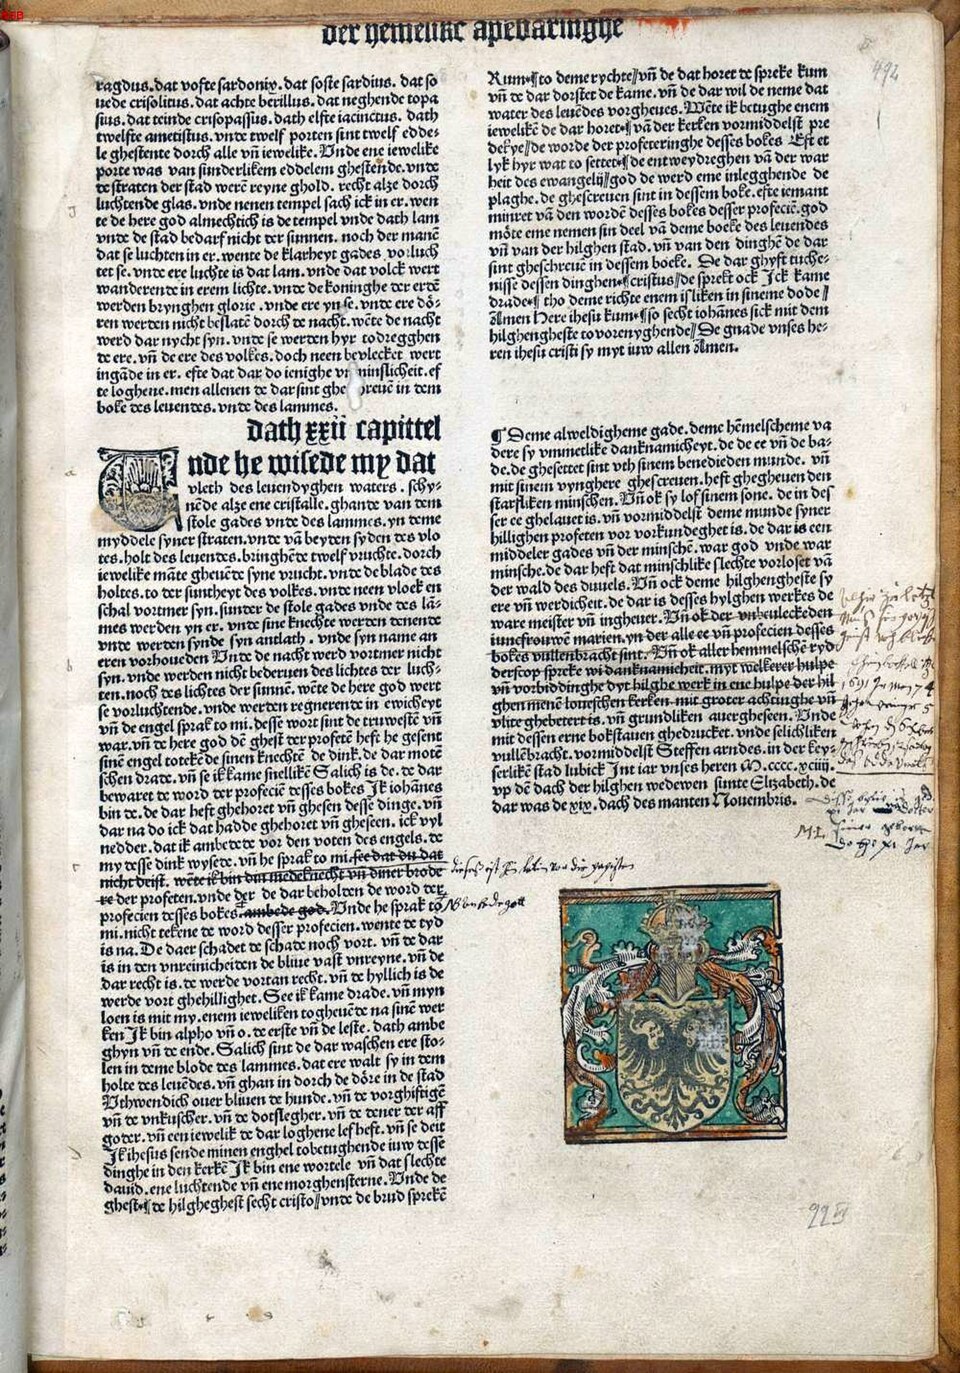 der hemelike apebaringhe
492
ragdus. dat vofte sardonix. dat soste sardius. dat so
uede crisolitus. dat achte berillus. dat neghende topa
sius. dat teinde crisopassus. dath elfte iacinctus. dath
twelfte ametistus. vnde twelf porten sint twelf edde-
le ghestente dorch alle vñ iewelike. Vnde ene iewelike
porte was van sunderlikem eddelem ghestẽde. vnde
de straten der stad werẽ reyne ghold. recht alze dorch
luchtende glas. vnde nenen tempel sach ick in er. wen
te de here god almechtich is de tempel vnde dath lam
vnde de stad bedarf nicht der sunnen. noch der manẽ
dat se luchten in er. wente de klarheyt gades vorluch
tet se. vnde ere luchte is dat lam. vnde dat volck wert
wanderende in erem lichte. vnde de koninghe der erdẽ
werden brynghen glorie. vnde ere yn se. vnde ere dö-
ren werden nicht beslatẽ dorch de nacht. wẽte de nacht
werd dar nycht syn. vnde se werden hyr todregghen
de ere. vñ de ere des volkes. doch neen bevlecket wert
ingãde in er. efte dat dar do ienighe vnminslicheit. ef
te loghene. men allenen de dar sint ghescreuẽ in dem
boke des leuendes. vnde des lammes.
dath xxii capittel
Vnde he wisede my dat
vleth des leuendyghen waters. schy-
nẽde alze ene cristalle. ghande van dem
stole gades vnde des lammes. yn deme
myddele syner straten. vnde vã beyten syden des vlo
tes. holt des leuendes. bringhẽde twelf vruchte. dorch
iewelike mãte gheuẽde syne vrucht. vnde de blade des
holtes. to der suntheyt des volkes. vnde neen vloek en
schal vortmer syn. sunder de stole gades vnde des lã-
mes werden yn er. vnde sine knechte werden denende
vnde werden synde syn antlath. vnde syn name an
eren vorhoueden Vnde de nacht werd vortmer nicht
syn. vnde werden nicht bederuen des lichtes der luch-
ten. noch des lichtes der sunnẽ. wẽte de here god wert
se vorluchtende. vnde werden regnerende in ewicheyt
vñ de engel sprak to mi. desse wort sint de truwestẽ vñ
war. vñ de here god dẽ ghest der profetẽ heft he gesent
sinẽ engel totekẽde sinen knechtẽ de dink. de dar motẽ
schen drade. vñ se ik kame snelliken Salich is de. de dar
bewaret de word der profeciẽ desses bokes Ik iohãnes
bin de. de dar heft ghehoret vñ ghesen desse dinge. vñ
dar na do ick dat hadde ghehoret vñ gheseen. ick vyl
nedder. dat ik ambedede vor den voten des engels. de
my desse dink wysede. vñ he sprak to mi. see dat du dat
nicht deist. wẽte ik bin din medeknecht vñ diner brode
re der profeten. vnde der de dar beholden de word der
profecien desses bokes. ambede god. Vnde he sprak to
mi. nicht tekene de word desser profecien. wente de tyd
is na. De daer schadet de schade noch vort. vñ de dar
is in den vnreinicheiden de bliue vast vnreyne. vñ de
dar recht is. de werde vortan recht. vñ de hyllich is de
werde vort ghehillighet. See ik kame drade. vñ myn
loen is mit my. enem ieweliken togheuẽde na sinẽ wer
ken Ik bin alpho vñ o. de erste vñ de leste. dath ambe
ghyn vñ de ende. Salich sint de dar waschen ere sto-
len in deme blode des lammes. dat ere walt sy in dem
holte des leuẽdes. vñ ghan in dorch de döre in de stad
Vthwendich ouer bliuen de hunde. vñ de vorghiftigẽ
vñ de vnkuscher. vñ de dotslegher. vñ de dener der aff
goder. vñ een iewelik de dar loghene lef heft. vñ se deit
Ik ihesus sende minen enghel tobetughende iuw desse
dinghe in den kerkẽ Ik bin ene wortele vñ dat slechte
dauid. ene luchtende vñ ene morghensterne. Vnde de
ghest ¶ de hilgheghest secht cristo // vnde de brud sprekẽ
Kum ¶ to deme rychte // vñ de dat horet de spreke kum
vñ de dar dorstet de kame. vñ de dar wil de neme dat
water des leuẽdes vorgheues. Wẽte ik betughe enem
iewelikẽ de dar horet ¶ vã der kerken vormiddelst pre
dekye // de worde der profeteringhe desses bokes Eft et
lyk hyr wat to settet ¶ de entweydreghen vã der war
heit des ewangelij // god de werd eme inlegghende de
plaghe. de ghescreuen sint in dessem boke. efte iemant
minret vã den wordẽ desses bokes desser profeciẽ. god
möte eme nemen sin deel vã deme boeke des leuendes
vñ van der hilghen stad. vñ van den dinghẽ de dar
sint gheschreuẽ in dessem boeke. De dar ghyft tuche-
nisse dessen dinghen ¶ cristus // de sprekt ock Ick kame
drade ¶ tho deme richte enem isliken in sineme dode //
Amen Here ihesu kum ¶ so secht iohãnes sick mit dem
hilghengheste to vorenyghende // De gnade vnses he-
ren ihesu cristi sy myt iuw allen Amen.
¶ Deme alweldigheme gade. deme hẽmelscheme va
dere sy vmmetlike danknamicheyt. de de ee vñ de ba-
de. de ghesettet sint vth sinem benedieden munde. vñ
mit sinem vynghere ghescreuen. heft ghegheuen den
starfliken minschen. Vñ ok sy lof sinem sone. de in des
ser ee ghelauet is. vñ vormiddelst deme munde syner
hillighen profeten vor vorkundeghet is. de dar is een
middeler gades vñ der minschẽ. war god vnde war
minsche. de dar heft dat minschlike slechte vorloset vã
der wald des duuels. Vñ ock deme hilghengheste sy
ere vñ werdicheit. de dar is desses hylghen werkes de
ware meister vñ ingheuer. Vñ ok der vnbeuleckeden
iuncfrouwẽ marien. yn der alle ee vñ profecien desses
bokes vullenbracht sint. Vñ ok aller hemmelschẽ ryd
derscop spreke wi danknamicheit. myt welkerer hulpe
vñ vorbiddinghe dyt hilghe werk in ene hulpe der hil
ghen menẽ louesschen kerken. mit groter achtinghe vñ
vlite ghebetert is. vñ grundliken auergheseen. Vnde
mit dessen erne bokstauen ghedrucket. vnde selichliken
vullẽbracht. vormiddelst Steffen arndes. in der key-
serlikẽ stad lubick Int iar vnses heren M. cccc. xciiij.
vp dẽ dach der hilghen wedewen sunte Elizabeth. de
dar was de xix. dach des manten Nouembris.